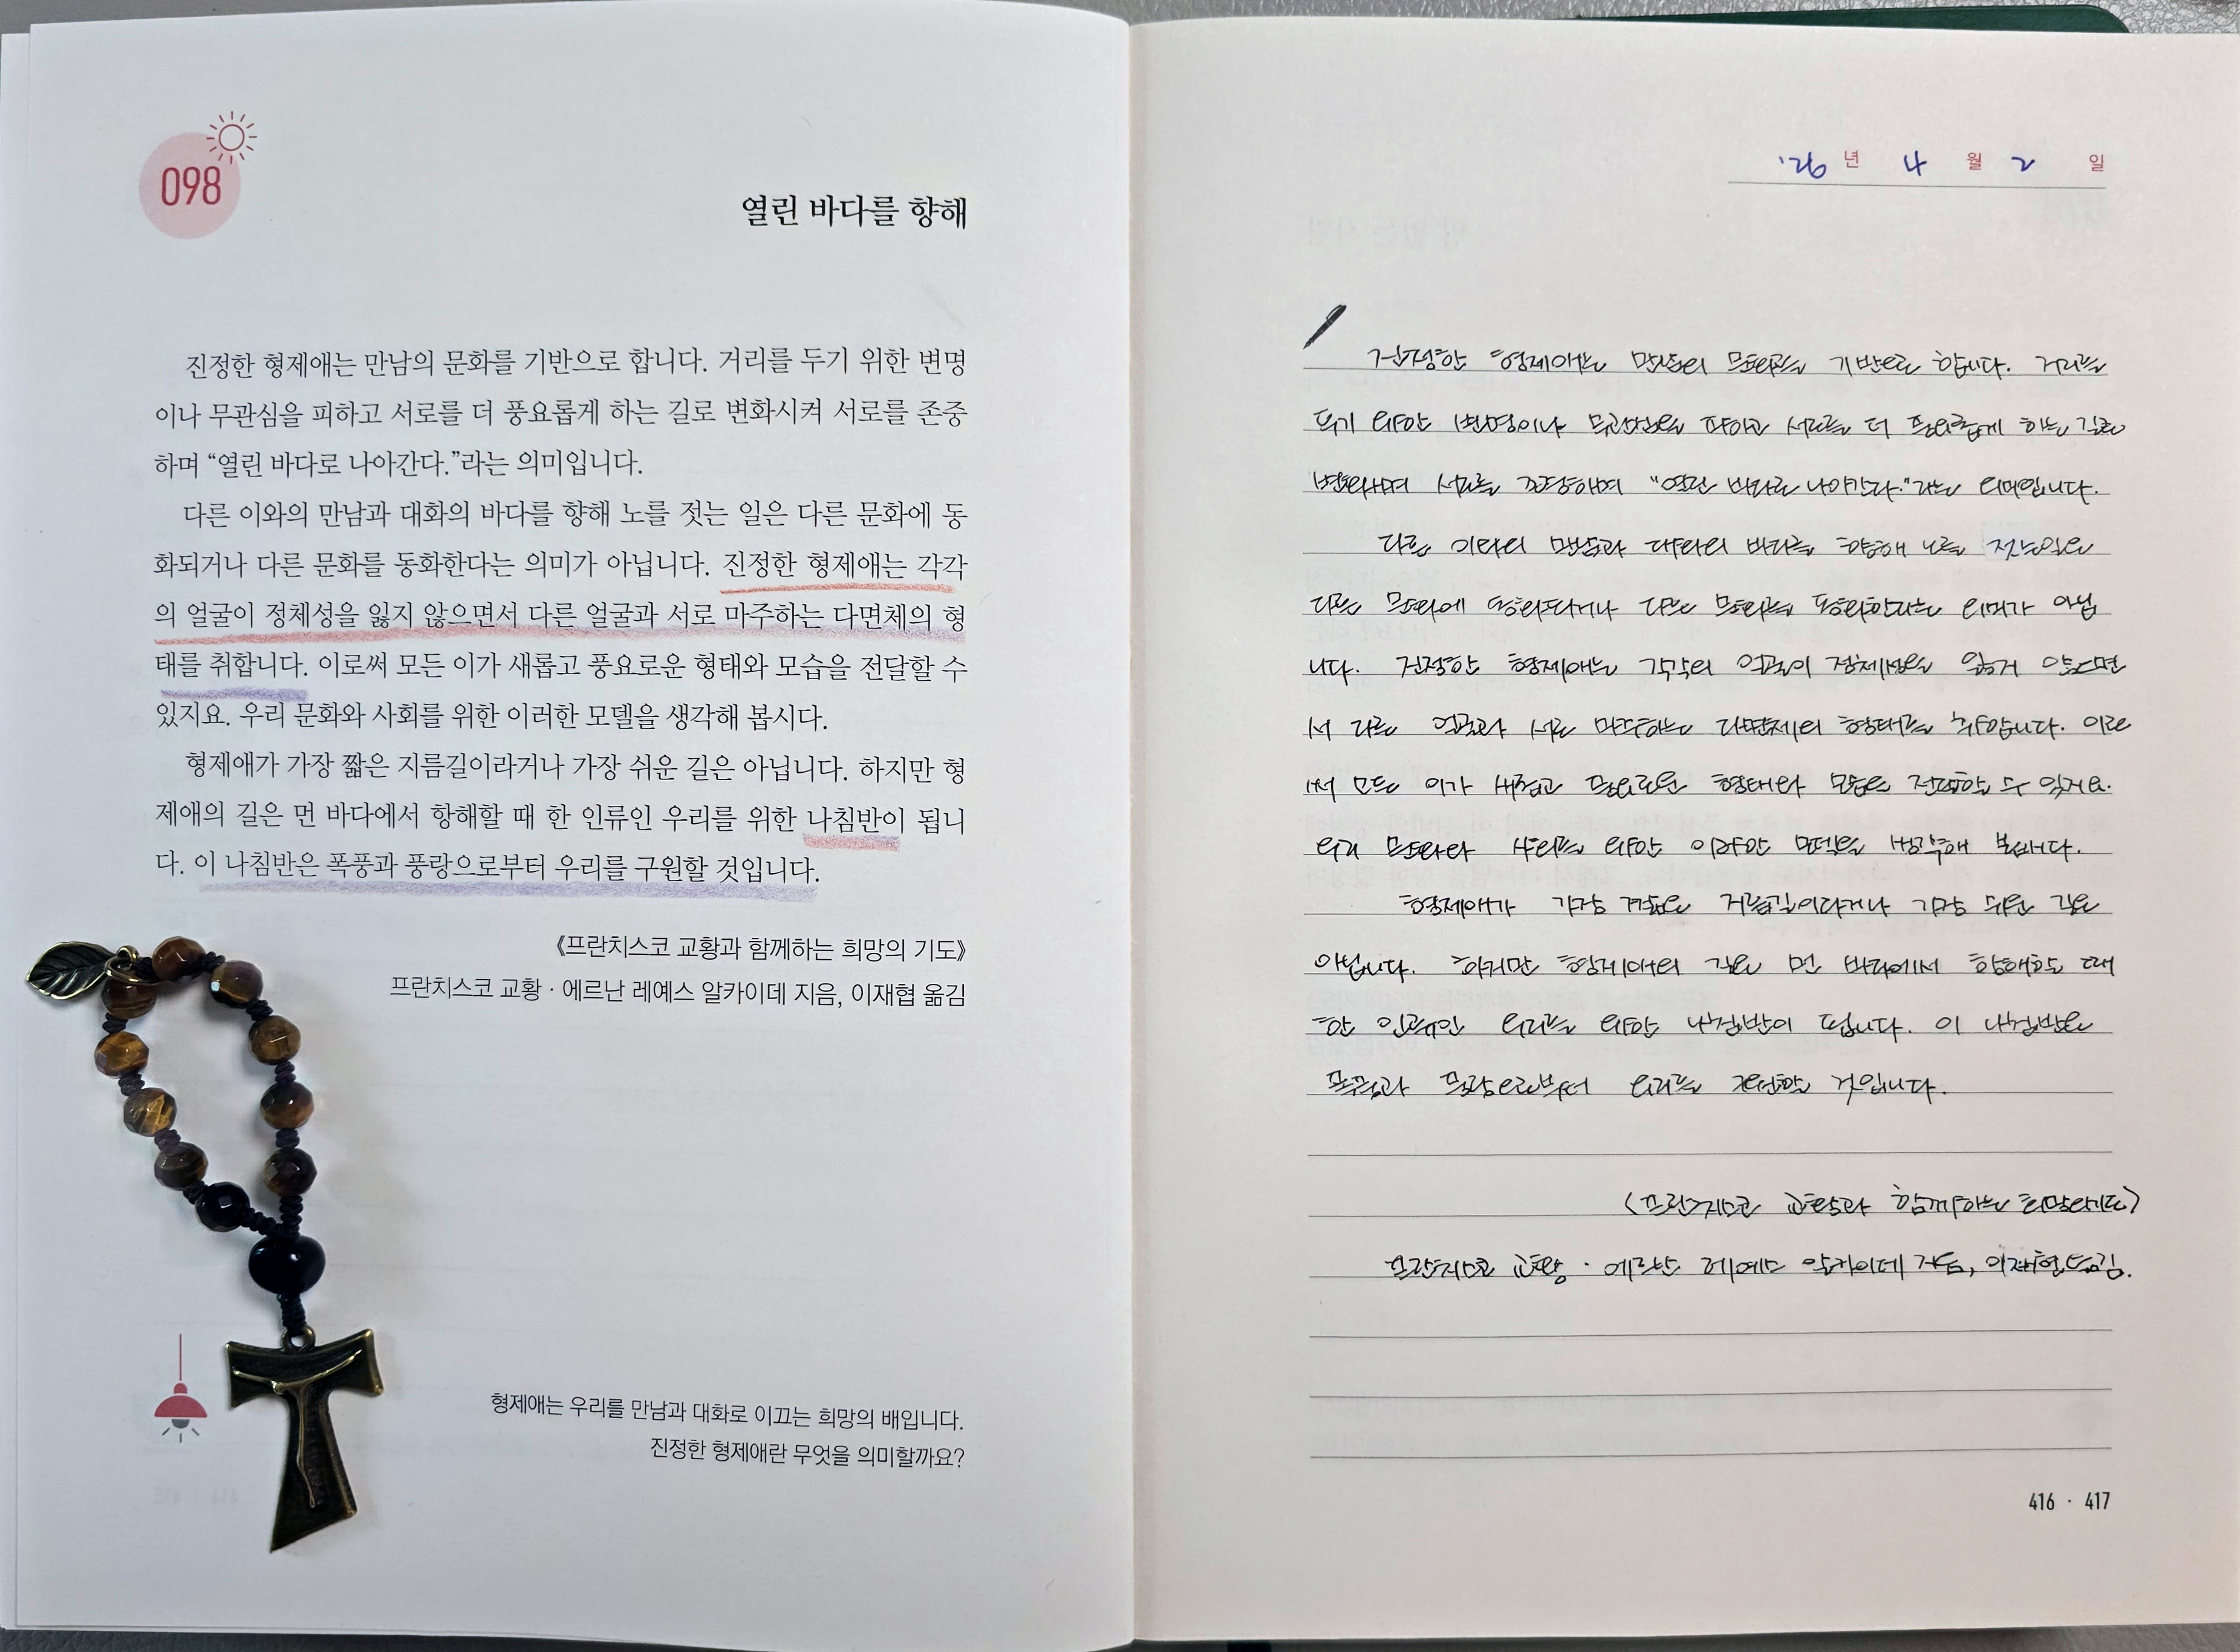 098
열린 바다를 향해
진정한 형제애는 만남의 문화를 기반으로 합니다. 거리를 두기 위한 변명
이나 무관심을 피하고 서로를 더 풍요롭게 하는 길로 변화시켜 서로를 존중
하며 “열린 바다로 나아간다.”라는 의미입니다.
다른 이와의 만남과 대화의 바다를 향해 노를 젓는 일은 다른 문화에 동
화되거나 다른 문화를 동화한다는 의미가 아닙니다. 진정한 형제애는 각각
의 얼굴이 정체성을 잃지 않으면서 다른 얼굴과 서로 마주하는 다면체의 형
태를 취합니다. 이로써 모든 이가 새롭고 풍요로운 형태와 모습을 전달할 수
있지요. 우리 문화와 사회를 위한 이러한 모델을 생각해 봅시다.
형제애가 가장 짧은 지름길이라거나 가장 쉬운 길은 아닙니다. 하지만 형
제애의 길은 먼 바다에서 항해할 때 한 인류인 우리를 위한 나침반이 됩니
다. 이 나침반은 폭풍과 풍랑으로부터 우리를 구원할 것입니다.
《프란치스코 교황과 함께하는 희망의 기도》
프란치스코 교황 · 에르난 레예스 알카이데 지음, 이재협 옮김
형제애는 우리를 만남과 대화로 이끄는 희망의 배입니다.
진정한 형제애란 무엇을 의미할까요?
'26 년 4 월 2 일
진정한 형제애는 만남의 문화를 기반으로 합니다. 거리를
두기 위한 변명이나 무관심을 피하고 서로를 더 풍요롭게 하는 길로
변화하며 서로를 존중하며 "열린 바다로 나아간다."라는 의미입니다.
다른 이와의 만남과 대화의 바다를 향해 노를 젓는일은
다른 문화에 동화되거나 다른 문화를 동화한다는 의미가 아닙
니다. 진정한 형제애는 각각의 얼굴이 정체성을 잃지 않으면
서 다른 얼굴과 서로 마주하는 다면체의 형태를 취합니다. 이로
써 모든 이가 새롭고 풍요로운 형태와 모습을 전달할 수 있지요.
우리 문화와 사회를 위한 이러한 모델을 생각해 봅시다.
형제애가 가장 짧은 지름길이라거나 가장 쉬운 길은
아닙니다. 하지만 형제애의 길은 먼 바다에서 항해할 때
한 인류인 우리를 위한 나침반이 됩니다. 이 나침반은
폭풍과 풍랑으로부터 우리를 구원할 것입니다.
〈프란치스코 교황과 함께하는 희망의기도〉
프란치스코 교황 · 에르난 레예스 알카이데 지음, 이재협 옮김.
416 · 417